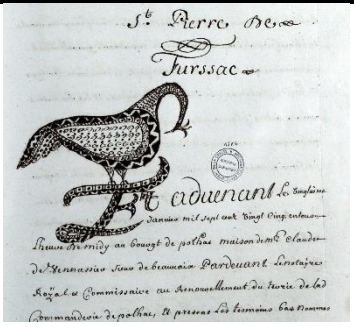 St. Pierre De
Furssac
Et advenant Le vingtieme
Janvier mil sept cent vingt cinq environ
Lheure de midy au bourgt de polhac maison de Mr. Claude
de sieur de beauvoix Pardevant Le notaire
Royal & Commissaire au Renouvellement du terrie de lad
Commanderie de polhac, Et presens Les temoins bas nommes